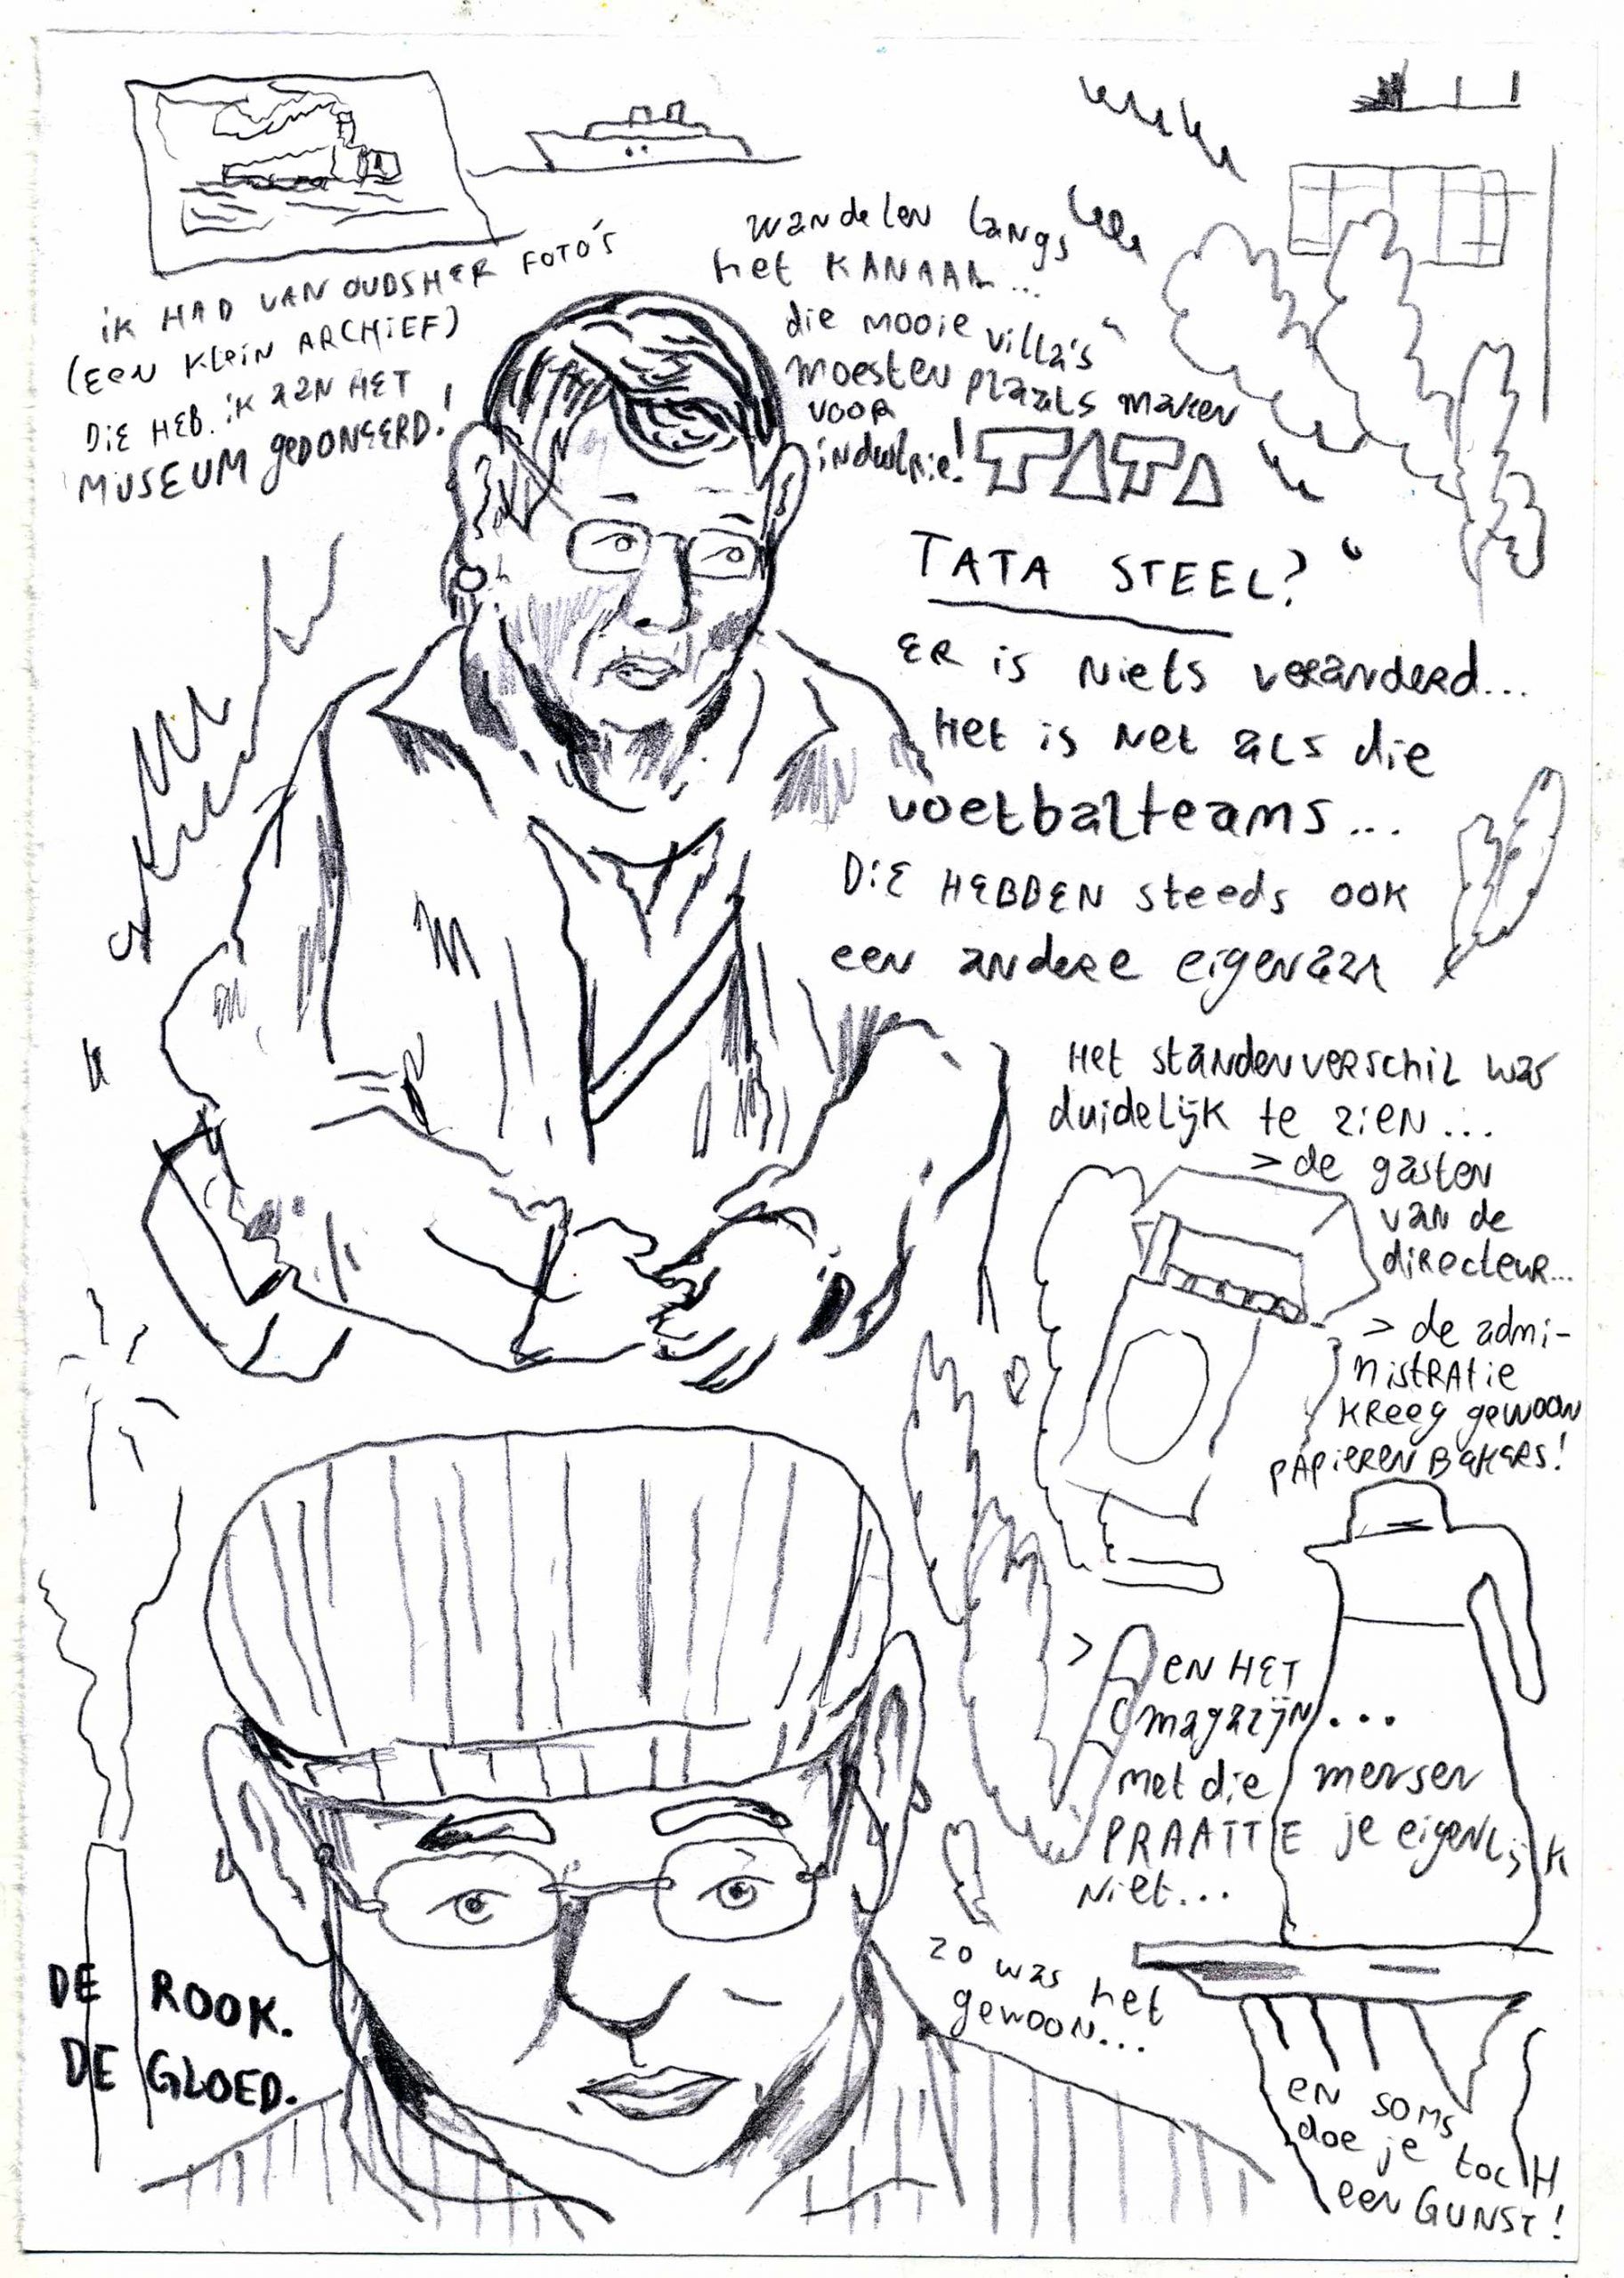 iK HAD VAN OUDSHER FOTO'S
(EEN KLEIN ARCHIEF)
DIE HEB iK AAN HET
MUSEUM GEDONEERD!
wandelen langs
het KANAAL...
die mooie villa's
moesten plaats maken
voor
industrie!
TATA
TATA STEEL?
ER is Niets veranderd...
Het is net als die
voetbalteams...
DIE HEBBEN steeds ook
een andere eigenaar
Het standenverschil was
duidelijk te zien...
> de gasten
van de
directeur...
> de admi-
nistratie
kreeg gewoon
papieren bekers!
> en HET
magazijn...
met die mensen
PRAATTE je eigenlijk
niet...
zo was het
gewoon...
en soms
doe je tocH
een GUNST!
DE ROOK.
DE GLOED.